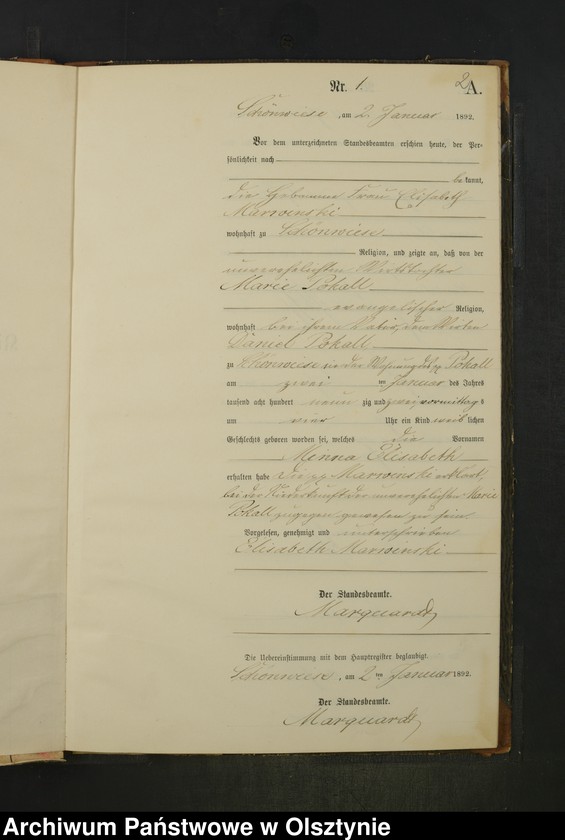 Nr. 1.
2
A.
Schönwiese, am 2. Januar 1892.
Vor dem unterzeichneten Standesbeamten erschien heute, der Per-
sönlichkeit nach
be kannt,
die Hebamme Frau Elisabeth
Marwinski
wohnhaft zu Schönwiese
Religion, und zeigte an, daß von der
unverehelichten Wirtstochter
Marie Pokall
evangelischer Religion,
wohnhaft bei ihrem Vater, dem Wirten
Daniel Pokall
zu Schönwiese in der Wohnung des pp. Pokall
am zwei ten Januar des Jahres
tausend acht hundert neun zig und zwei vormittag s
um vier Uhr ein Kind weib lichen
Geschlechts geboren worden sei, welches die Vornamen
Menna Elisabeth
erhalten habe Die pp. Marwenski erklärt,
bei der Niederkunft der unverehelichten Marie
Pokall zugegen gewesen zu sein.
Vorgelesen, genehmigt und unterschrieben
Elisabeth Marwenski
Der Standesbeamte.
Marquardt
Die Uebereinstimmung mit dem Hauptregister beglaubigt.
Schönwiese, am 2 ten Januar 1892.
Der Standesbeamte.
Marquardt
Archiwum Państwowe w Olsztynie